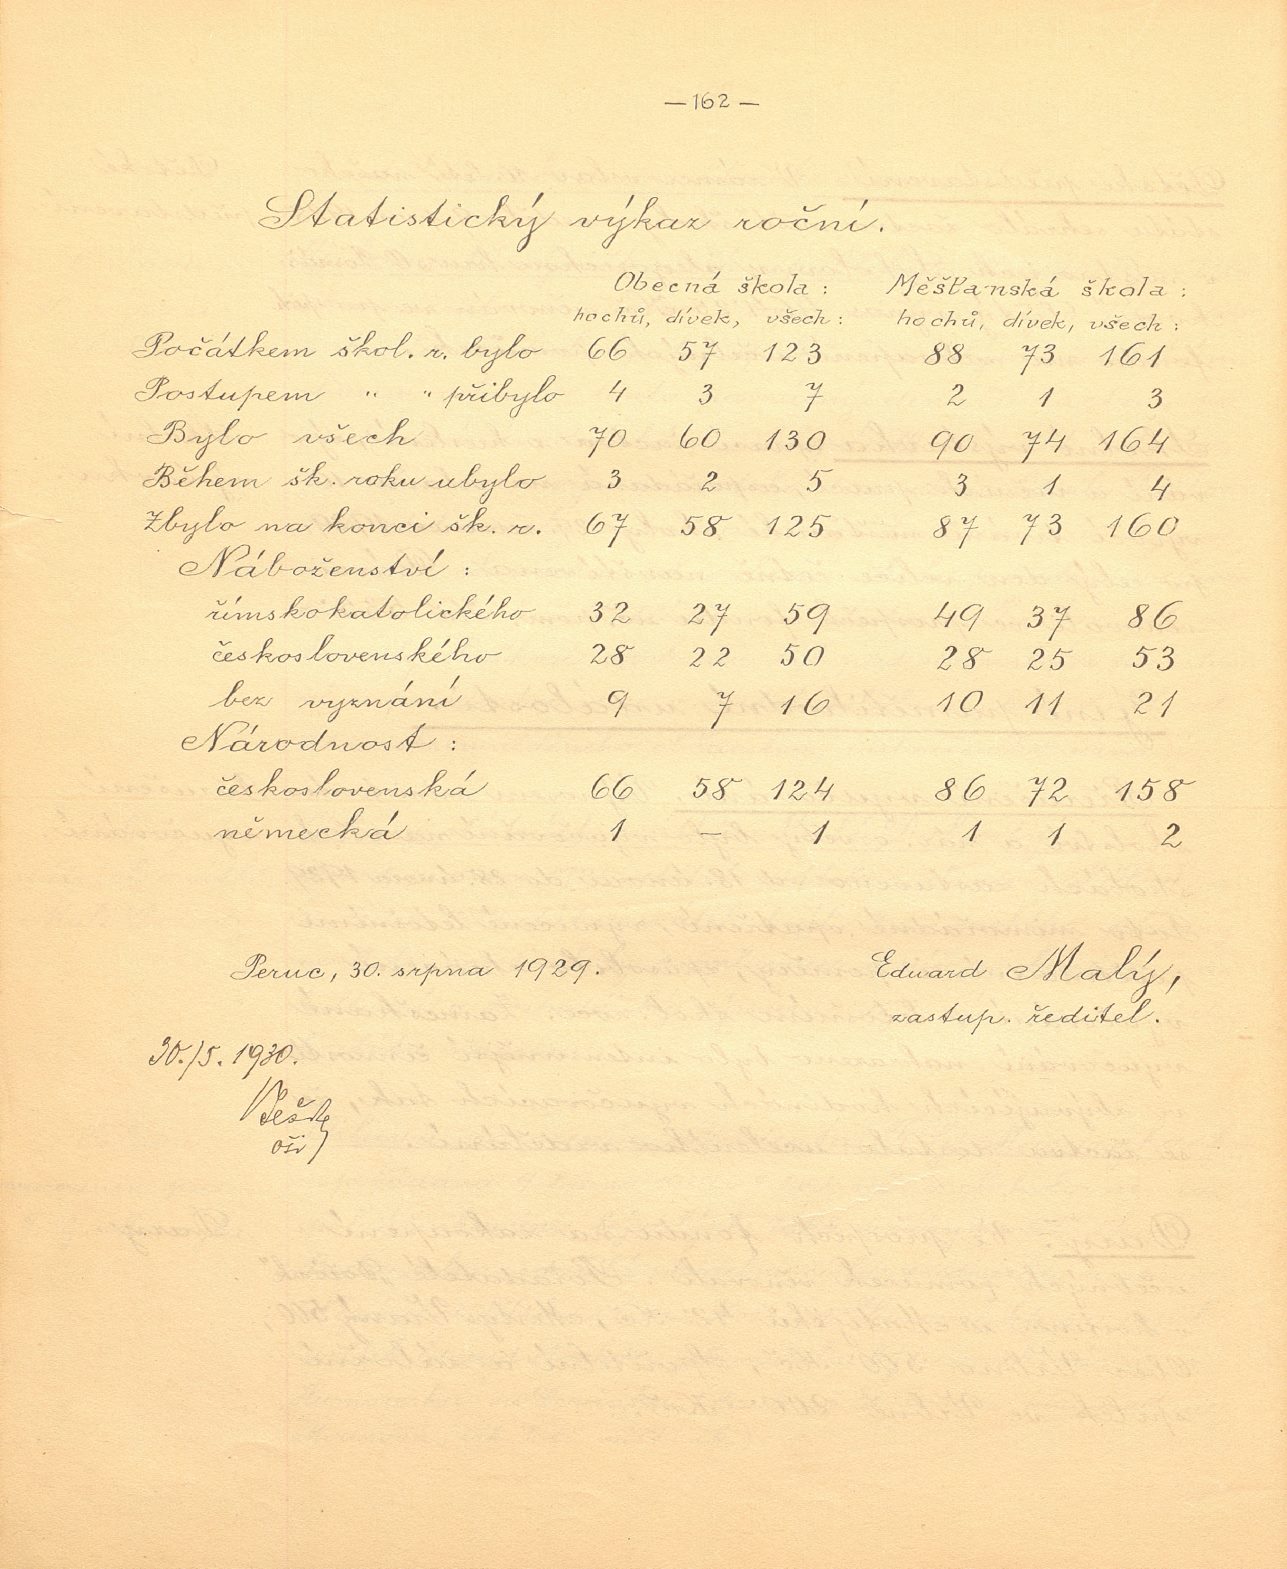 — 162 —
Statistický výkaz roční.
Obecná škola : Měšťanská škola :
hochů, dívek, všech : hochů, dívek, všech :
Počátkem škol. r. bylo 66 57 123 88 73 161
Postupem " " přibylo 4 3 7 2 1 3
Bylo všech 70 60 130 90 74 164
Během šk. roku ubylo 3 2 5 3 1 4
Zbylo na konci šk. r. 67 58 125 87 73 160
Náboženství :
římskokatolického 32 27 59 49 37 86
československého 28 22 50 28 25 53
bez vyznání 9 7 16 10 11 21
Národnost :
československá 66 58 124 86 72 158
německá 1 — 1 1 1 2
Peruc, 30. srpna 1929. Eduard Malý,
zastup. ředitel.
30./5. 1930.